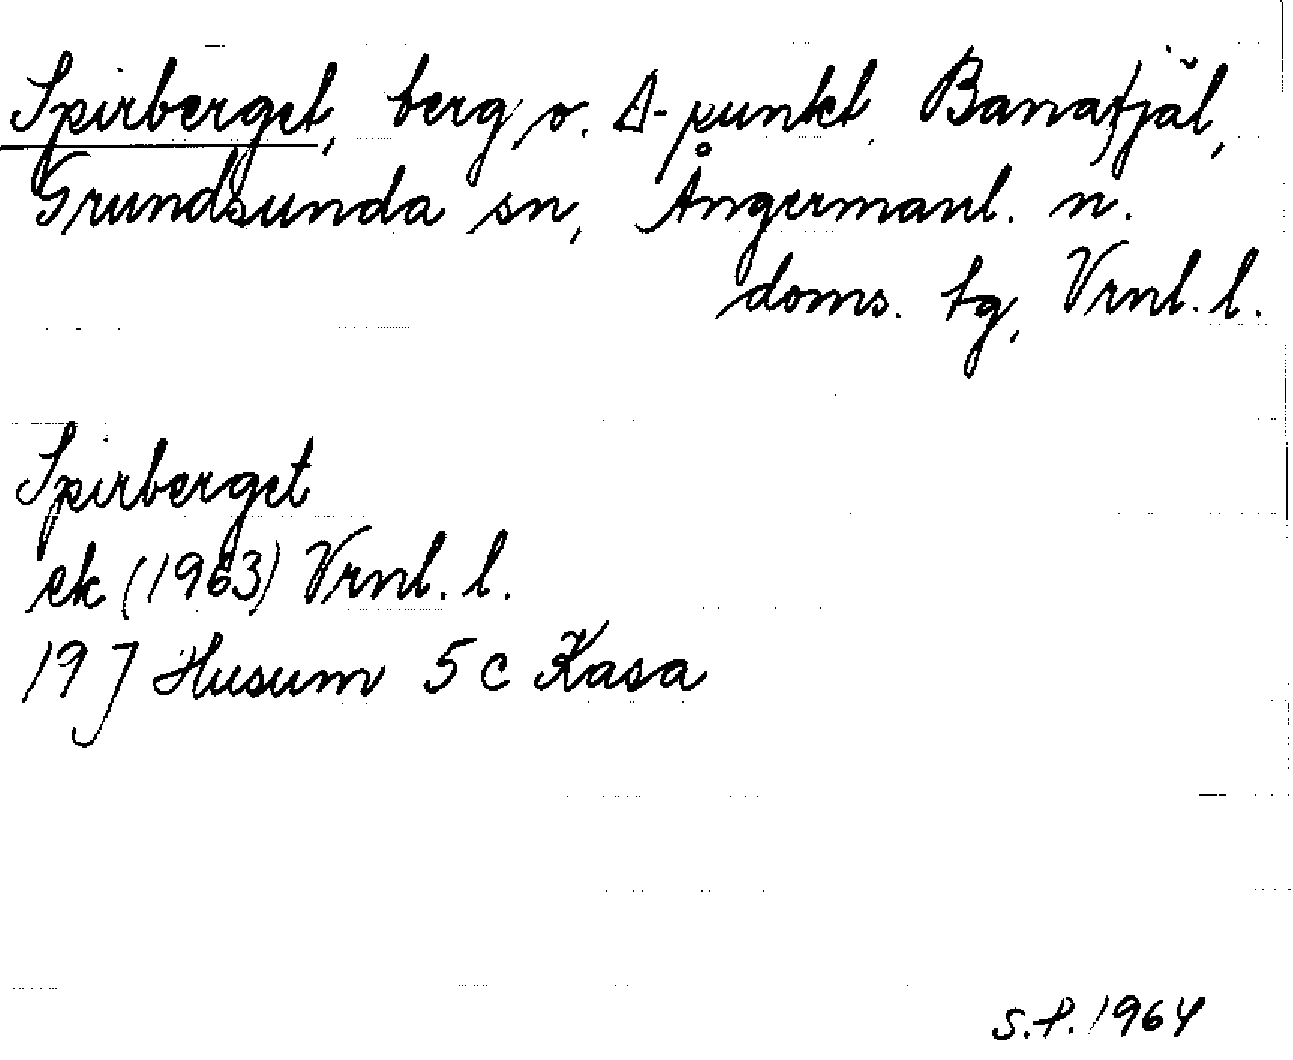 Spirberget, berg o. Δ-punkt, Banafjäl,
Grundsunda sn, Ångermanl. n.
doms. tg, Vrnl. l.
Spirberget
ek (1963) Vrnl. l.
19 J Husum 5 c Kasa
S.P. 1964